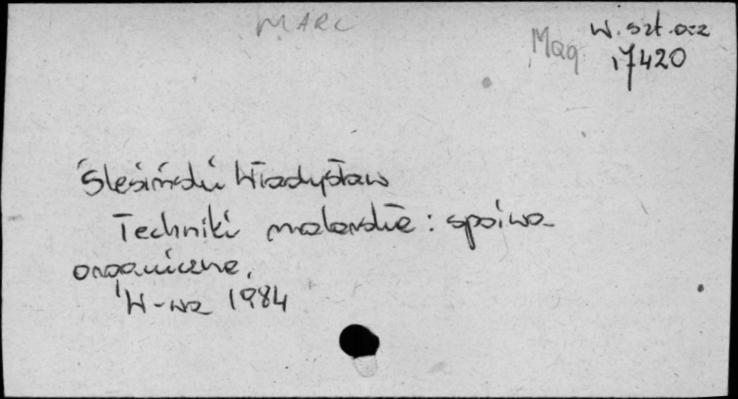 MARC
W. szt. o-z
Mag 17420
Ślesiński Władysław
Techniki malarskie : spoiwa
organiczne,
W-wa 1984